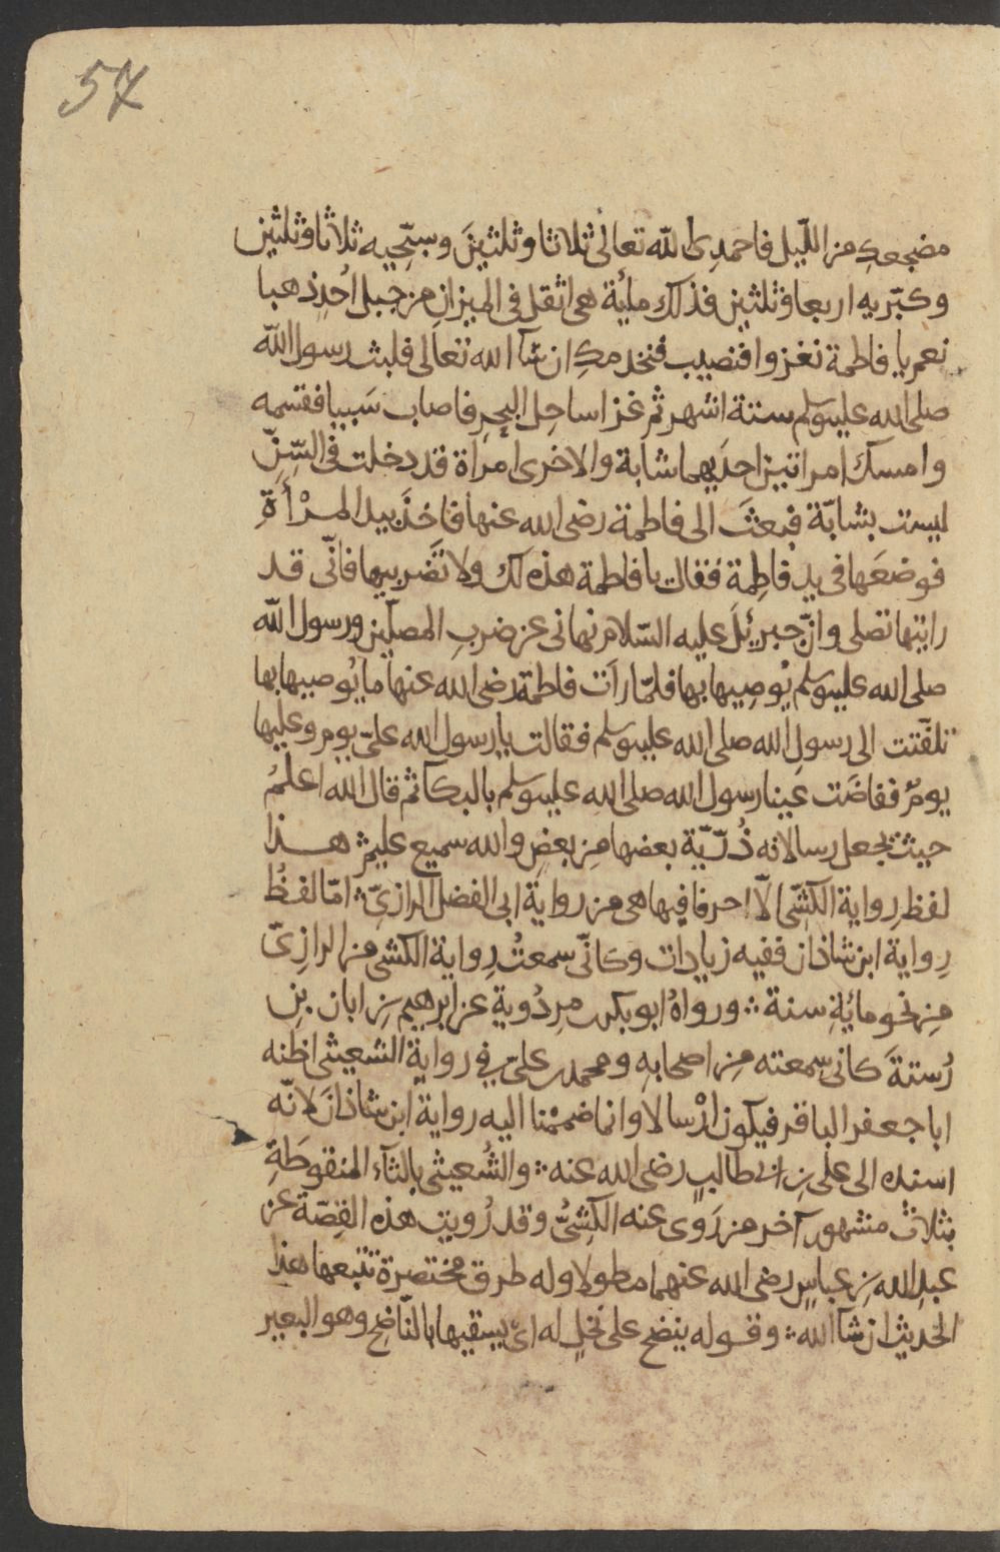 57
مضجعكِ من اللّيل فاحمدِى اللّه تعالى ثلاثا وثلثينَ وسبّحِيه ثلاثا وثلثين
وكبّريه اربعا وثلثين فذلك مائة هى اثقل فى الميزان من جبل اُحدٍ ذهبا
نعم يا فاطمة نغزوا فنصيب فنخدمكِ ان شآ الله تعالى فلبث رسول اللّه
صلى الله عليه وسلم ستة اشهر ثم غزا ساحِل البحرِ فاصاب سَبيا فقسمه
وامسك امراتين احدَيهما شابة والاخرى امراة قد دخلت فى السّنّ
ليست بشابّة فبعثَ الى فاطمة رضى الله عنها فاخذَ بيد المرْأةِ
فوضعَها فى يدِ فاطِمة فقال يا فاطمة هذه لك ولا تضربيها فانّى قد
رايتها تصلى وانّ جبرئلَ عليه السّلام نهانى عن ضربِ المصلّين ورسول اللّه
صلى الله عليه وسلم يُوصِيها بها فلمّا رآت فاطمة رضى الله عنها ما يُوصيها بها
تلفّتت الى رسولِ الله صلى الله عليه وسلم فقالت يا رسول الله علىّ يوم وعليها
يومٌ ففاضَت عينا رسول الله صلى الله عليه وسلم بالبكآ ثم قال الله اعلمُ
حيث يجعل رسالاته ذُرّيّة بعضها مِن بعضٍ والله سميع عليم ۞ هذا
لفظ رِواية الكشّى الّا احرفا فيها هى من رواية ابى الفضل الرازىّ ۞ امّا لفظُ
رِواية ابن شاذان ففيه زيادات وكانّى سمعتُ رِواية الكشى من الرازِىّ
مِن نحو مائةِ سنة ۞ ورواهُ ابو بكر بن مِردُوية عن ابرهيم بن ابان بنِ
رُستةَ كانى سمعته مِن اصحابهِ ومحمد بن علىّ فى رواية الشعيثى اظنه
ابا جعفر الباقر فيكون ارْسالا وانما ضممْنا اليه رواية ابن شاذانَ لانّه
اسنده الى على بنِ ابى طالبٍ رضى الله عنه ۞ والشُعيثى بالثآء المنقوطَةِ
بثلاث مشهور آخر من رَوى عنه الكشِىُّ وقد رُويت هذه القِصّة عن
عبدِ الله بنِ عباسٍ رضى الله عنهما مطولا وله طرق مختصرة نتبعها هذا
الحديث ان شآ الله ۞ وقوله ينضح على نخلٍ له اى يسقيها بالنّاضِح وهو البعير